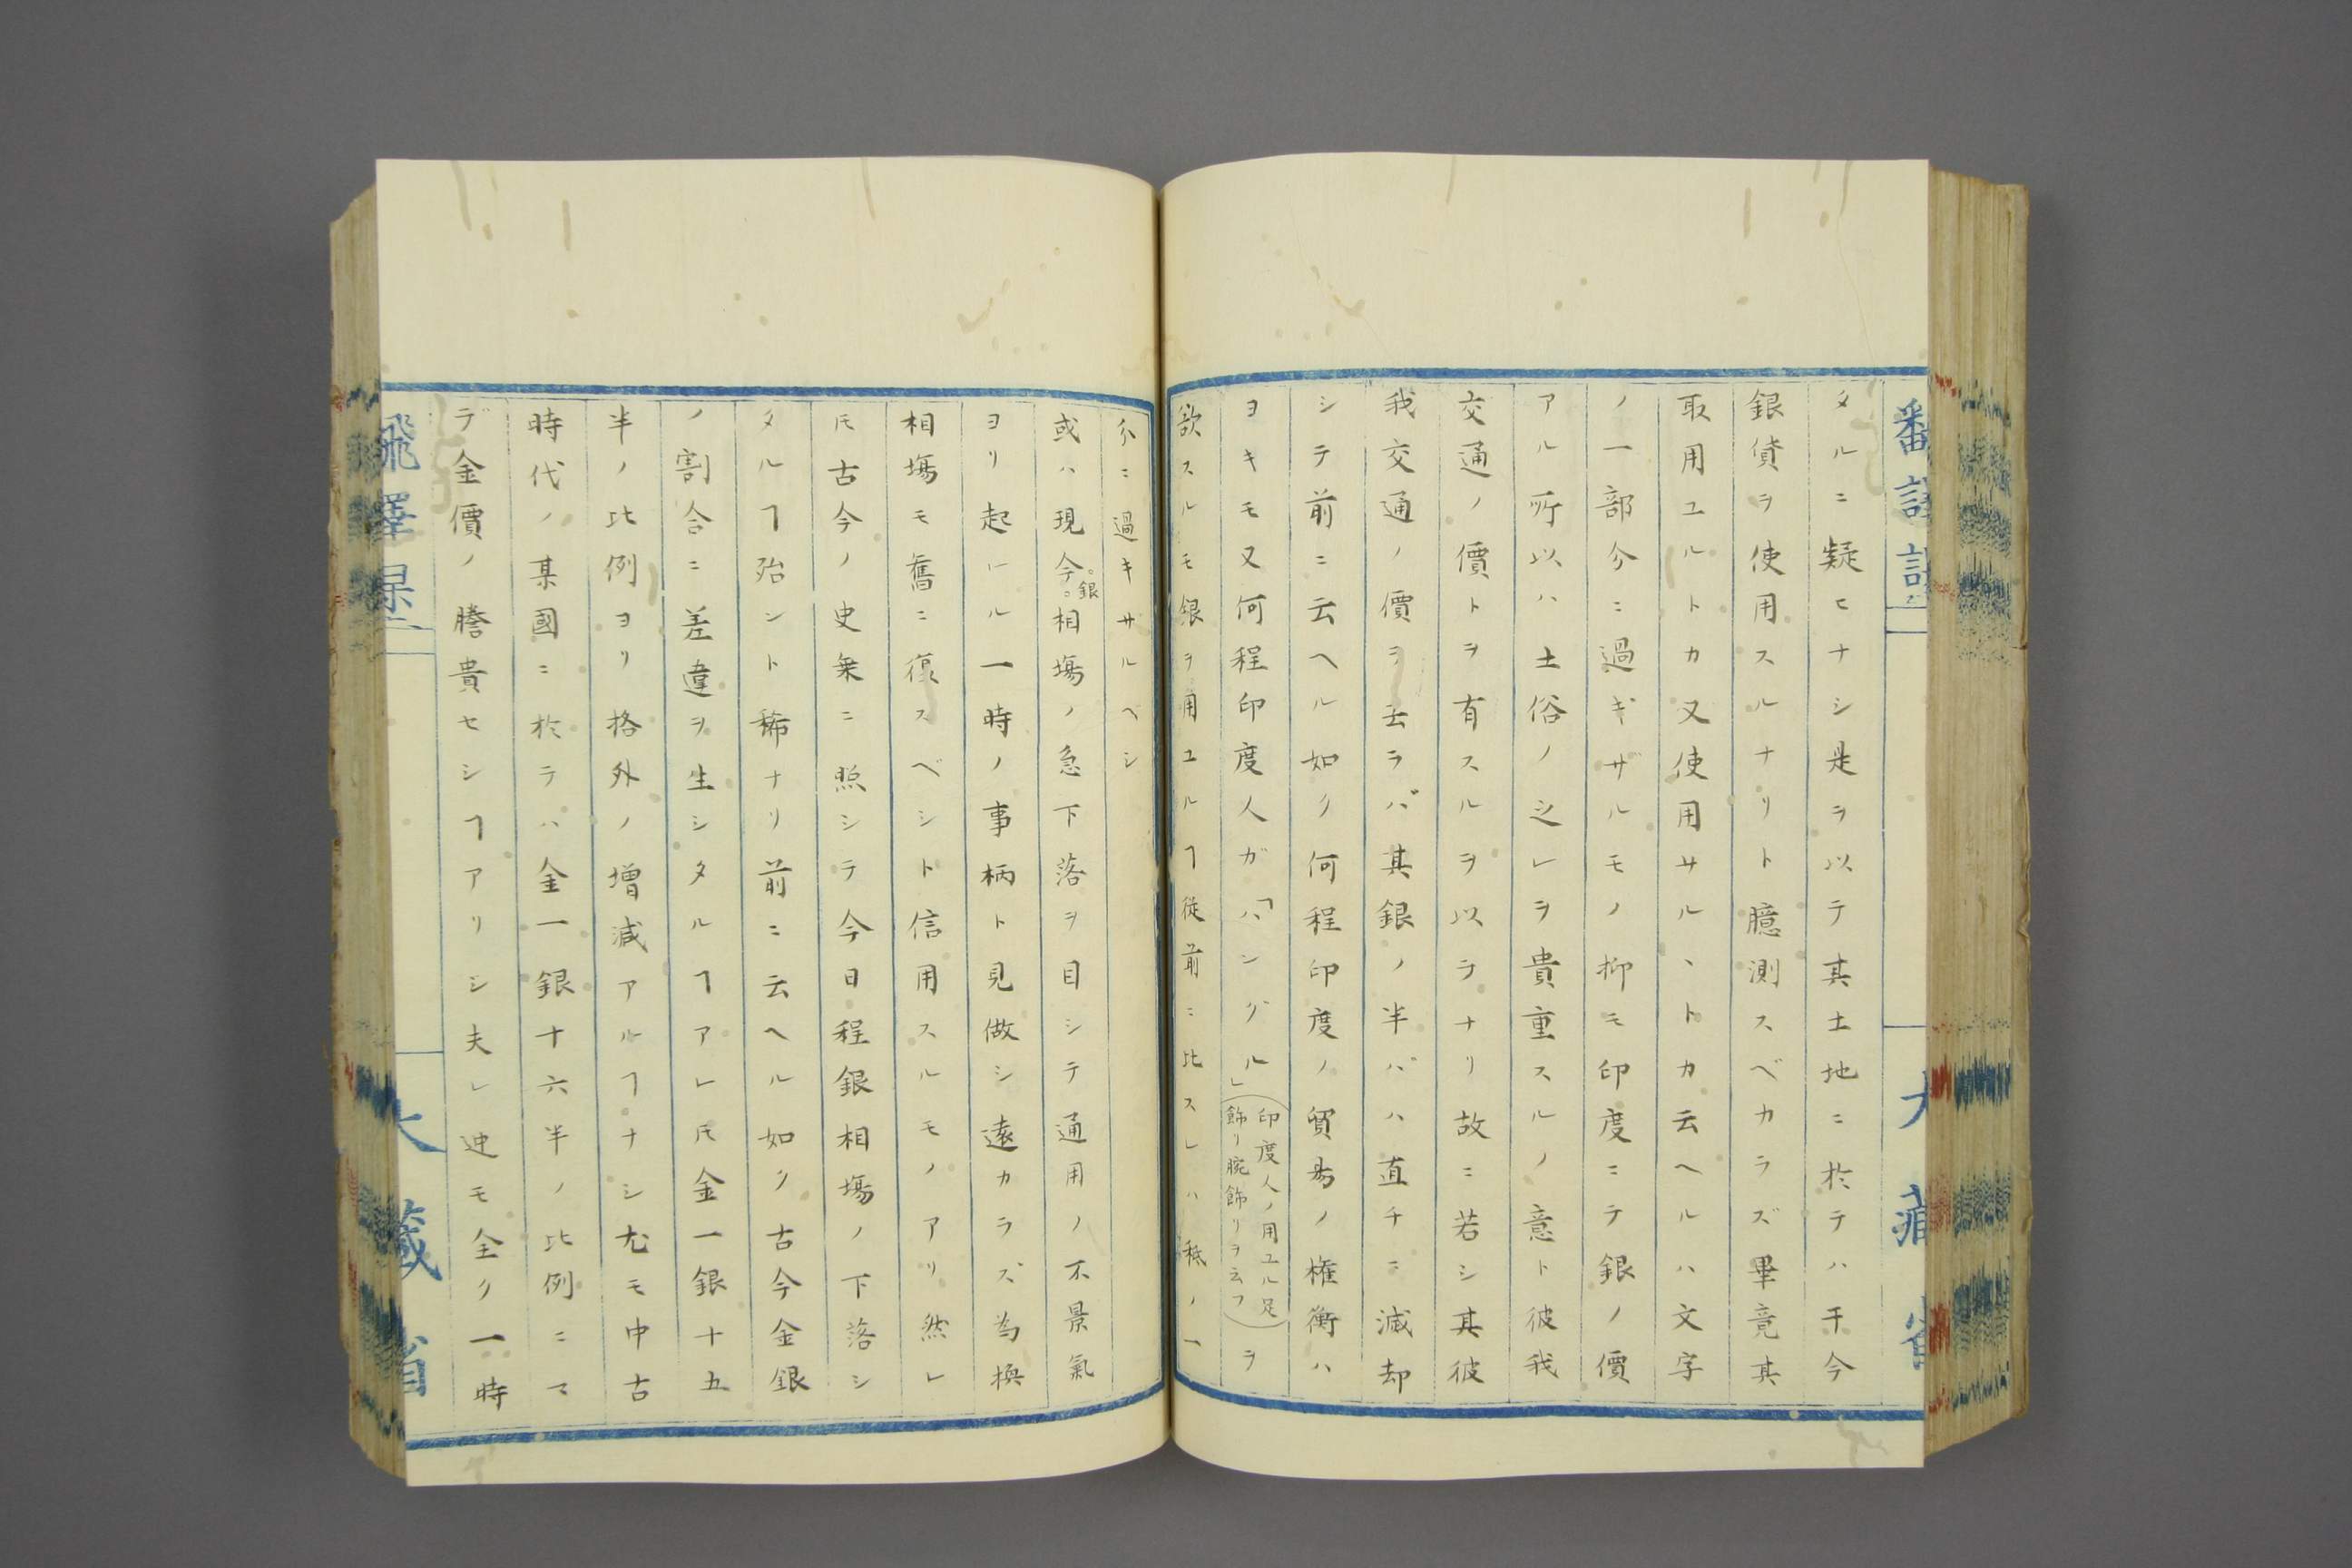 タルニ疑ヒナシ是ヲ以テ其土地ニ於テハ于今
銀貨ヲ使用スルナリト臆測スベカラズ畢竟其
取用ユルトカ又使用サルヽトカ云ヘルハ文字
ノ一部分ニ過ギザルモノ抑モ印度ニテ銀ノ價
アル所以ハ土俗ノ之レヲ貴重スルノ意ト彼我
交通ノ價トヲ有スルヲ以ラナリ故ニ若シ其彼
我交通ノ價ヲ去ラバ其銀ノ半バハ直チニ減却
シテ前ニ云ヘル如ク何程印度ノ貿易ノ権衡ハ
ヨキモ又何程印度人ガ「ハングル」(印度人ノ用ユル足飾リ腕飾リヲ云フ)ヲ
欲スルモ銀ヲ用ユルヿ従前ニ比スレハ秪ノ一
分ニ過キサルベシ
或ハ現今。銀。相塲ノ急下落ヲ目シテ通用ノ不景氣
ヨリ起レル一時ノ事柄ト見做シ遠カラズ為換
相塲モ舊ニ復スベシト信用スルモノアリ然レ
𪜈古今ノ史乗ニ照シテ今日程銀相塲ノ下落シ
タルヿ殆ント稀ナリ前ニ云ヘル如ク古今金銀
ノ割合ニ差違ヲ生シタルヿアレ𪜈金一銀十五
半ノ比例ヨリ格外ノ増減アルヿナシ尤モ中古
時代ノ某國ニ於テハ金一銀十六半ノ比例ニマ
デ金價ノ騰貴セシヿアリシ夫レ迚モ全ク一時
大藏省